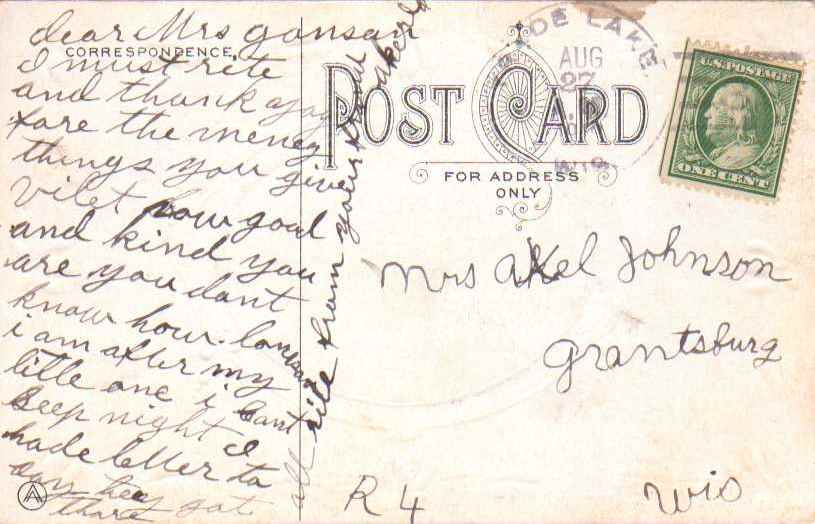 dear Mrs gonsan
CORRESPONDENCE
I must rite
and thank
fare the meney
things you give
vilet how goad
and kind you
are you dant
know how
i am after my
little one i cant
seep night I
hade letter to
gat
thare
all rite fram your
POST CARD
FOR ADDRESS
ONLY
DE LAKE
AUG
27
WIS
U.S. POSTAGE
ONE CENT
Mrs akel Johnson
grantsburg
R 4
Wis